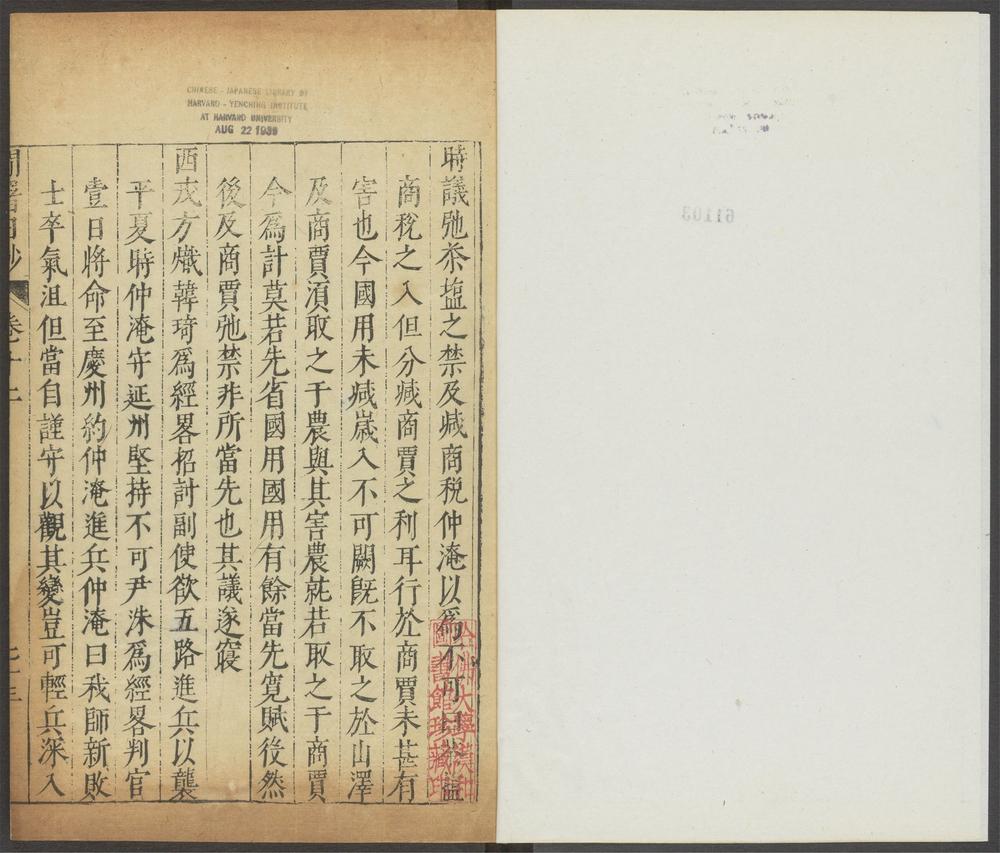 CHINESE - JAPANESE LIBRARY OF
HARVARD - YENCHING INSTITUTE
AT HARVARD UNIVERSITY
AUG 22 1939
時議弛茶塩之禁及减商稅仲淹以爲不可曰茶塩
商稅之入但分减商賈之利耳行於商賈未甚有
害也今國用未减嵗入不可闕旣不取之於山澤
及商賈湏取之于農與其害農孰若取之于商賈
今爲計莫若先省國用國用有餘當先寬賦後然
後及商賈弛禁非所當先也其議遂寢
西戎方熾韓琦爲經畧招討副使欲五路進兵以襲
平夏時仲淹守延州堅持不可尹洙爲經畧判官
壹日將命至慶州約仲淹進兵仲淹曰我師新敗
士卒氣沮但當自謹守以觀其變豈可輕兵深入
日抄
卷十二
哈佛大學漢和
圖書館珍藏印
61103